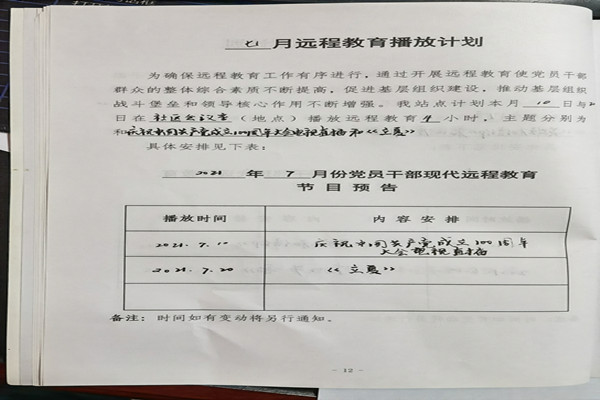 七 月远程教育播放计划
为确保远程教育工作有序进行，通过开展远程教育使党员干部
群众的整体综合素质不断提高，促进基层组织建设，推动基层组织
战斗堡垒和领导核心作用不断增强。我站点计划本月 10 日与
日在 社区会议室 （地点）播放远程教育 4 小时，主题分别为
和庆祝中国共产党成立100周年大会电视直播和《立夏》
具体安排见下表：
2021 年 7 月份党员干部现代远程教育
节目预告
播放时间 内容安排
2021.7.10 庆祝中国共产党成立100周年
大会电视直播
2021.7.20 《立夏》
备注：时间如有变动将另行通知。
- 12 -